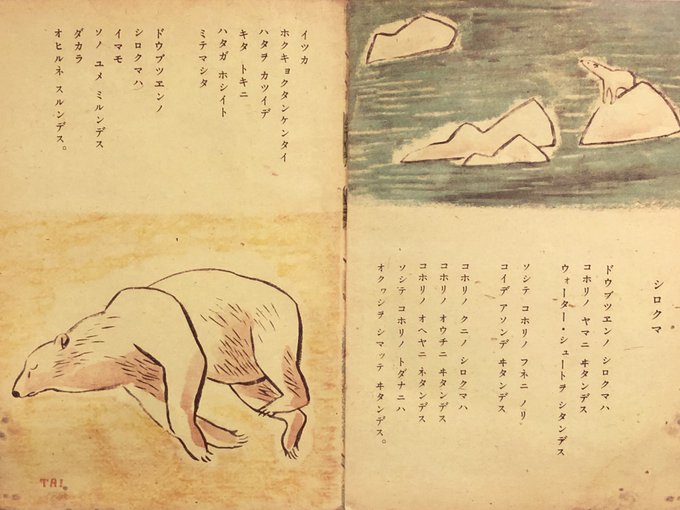 シロクマ
ドウブツヱンノ シロクマハ
コホリノ ヤマニ ヰタンデス
ウォーター・シュートヲ シタンデス
ソシテ コホリノ フネニ ノリ
コイデ アソンデ ヰタンデス
コホリノ クニノ シロクマハ
コホリノ オウチニ ヰタンデス
コホリノ オヘヤニ ネタンデス
ソシテ コホリノ トダナニハ
オクヮシヲ シマッテ ヰタンデス。
イツカ
ホクキョクタンケンタイ
ハタヲ カツイデ
キタ トキニ
ハタガ ホシイト
ミテマシタ
ドウブツヱンノ
シロクマハ
イマモ
ソノ ユメ ミルンデス
ダカラ
オヒルネ スルンデス。
TAI